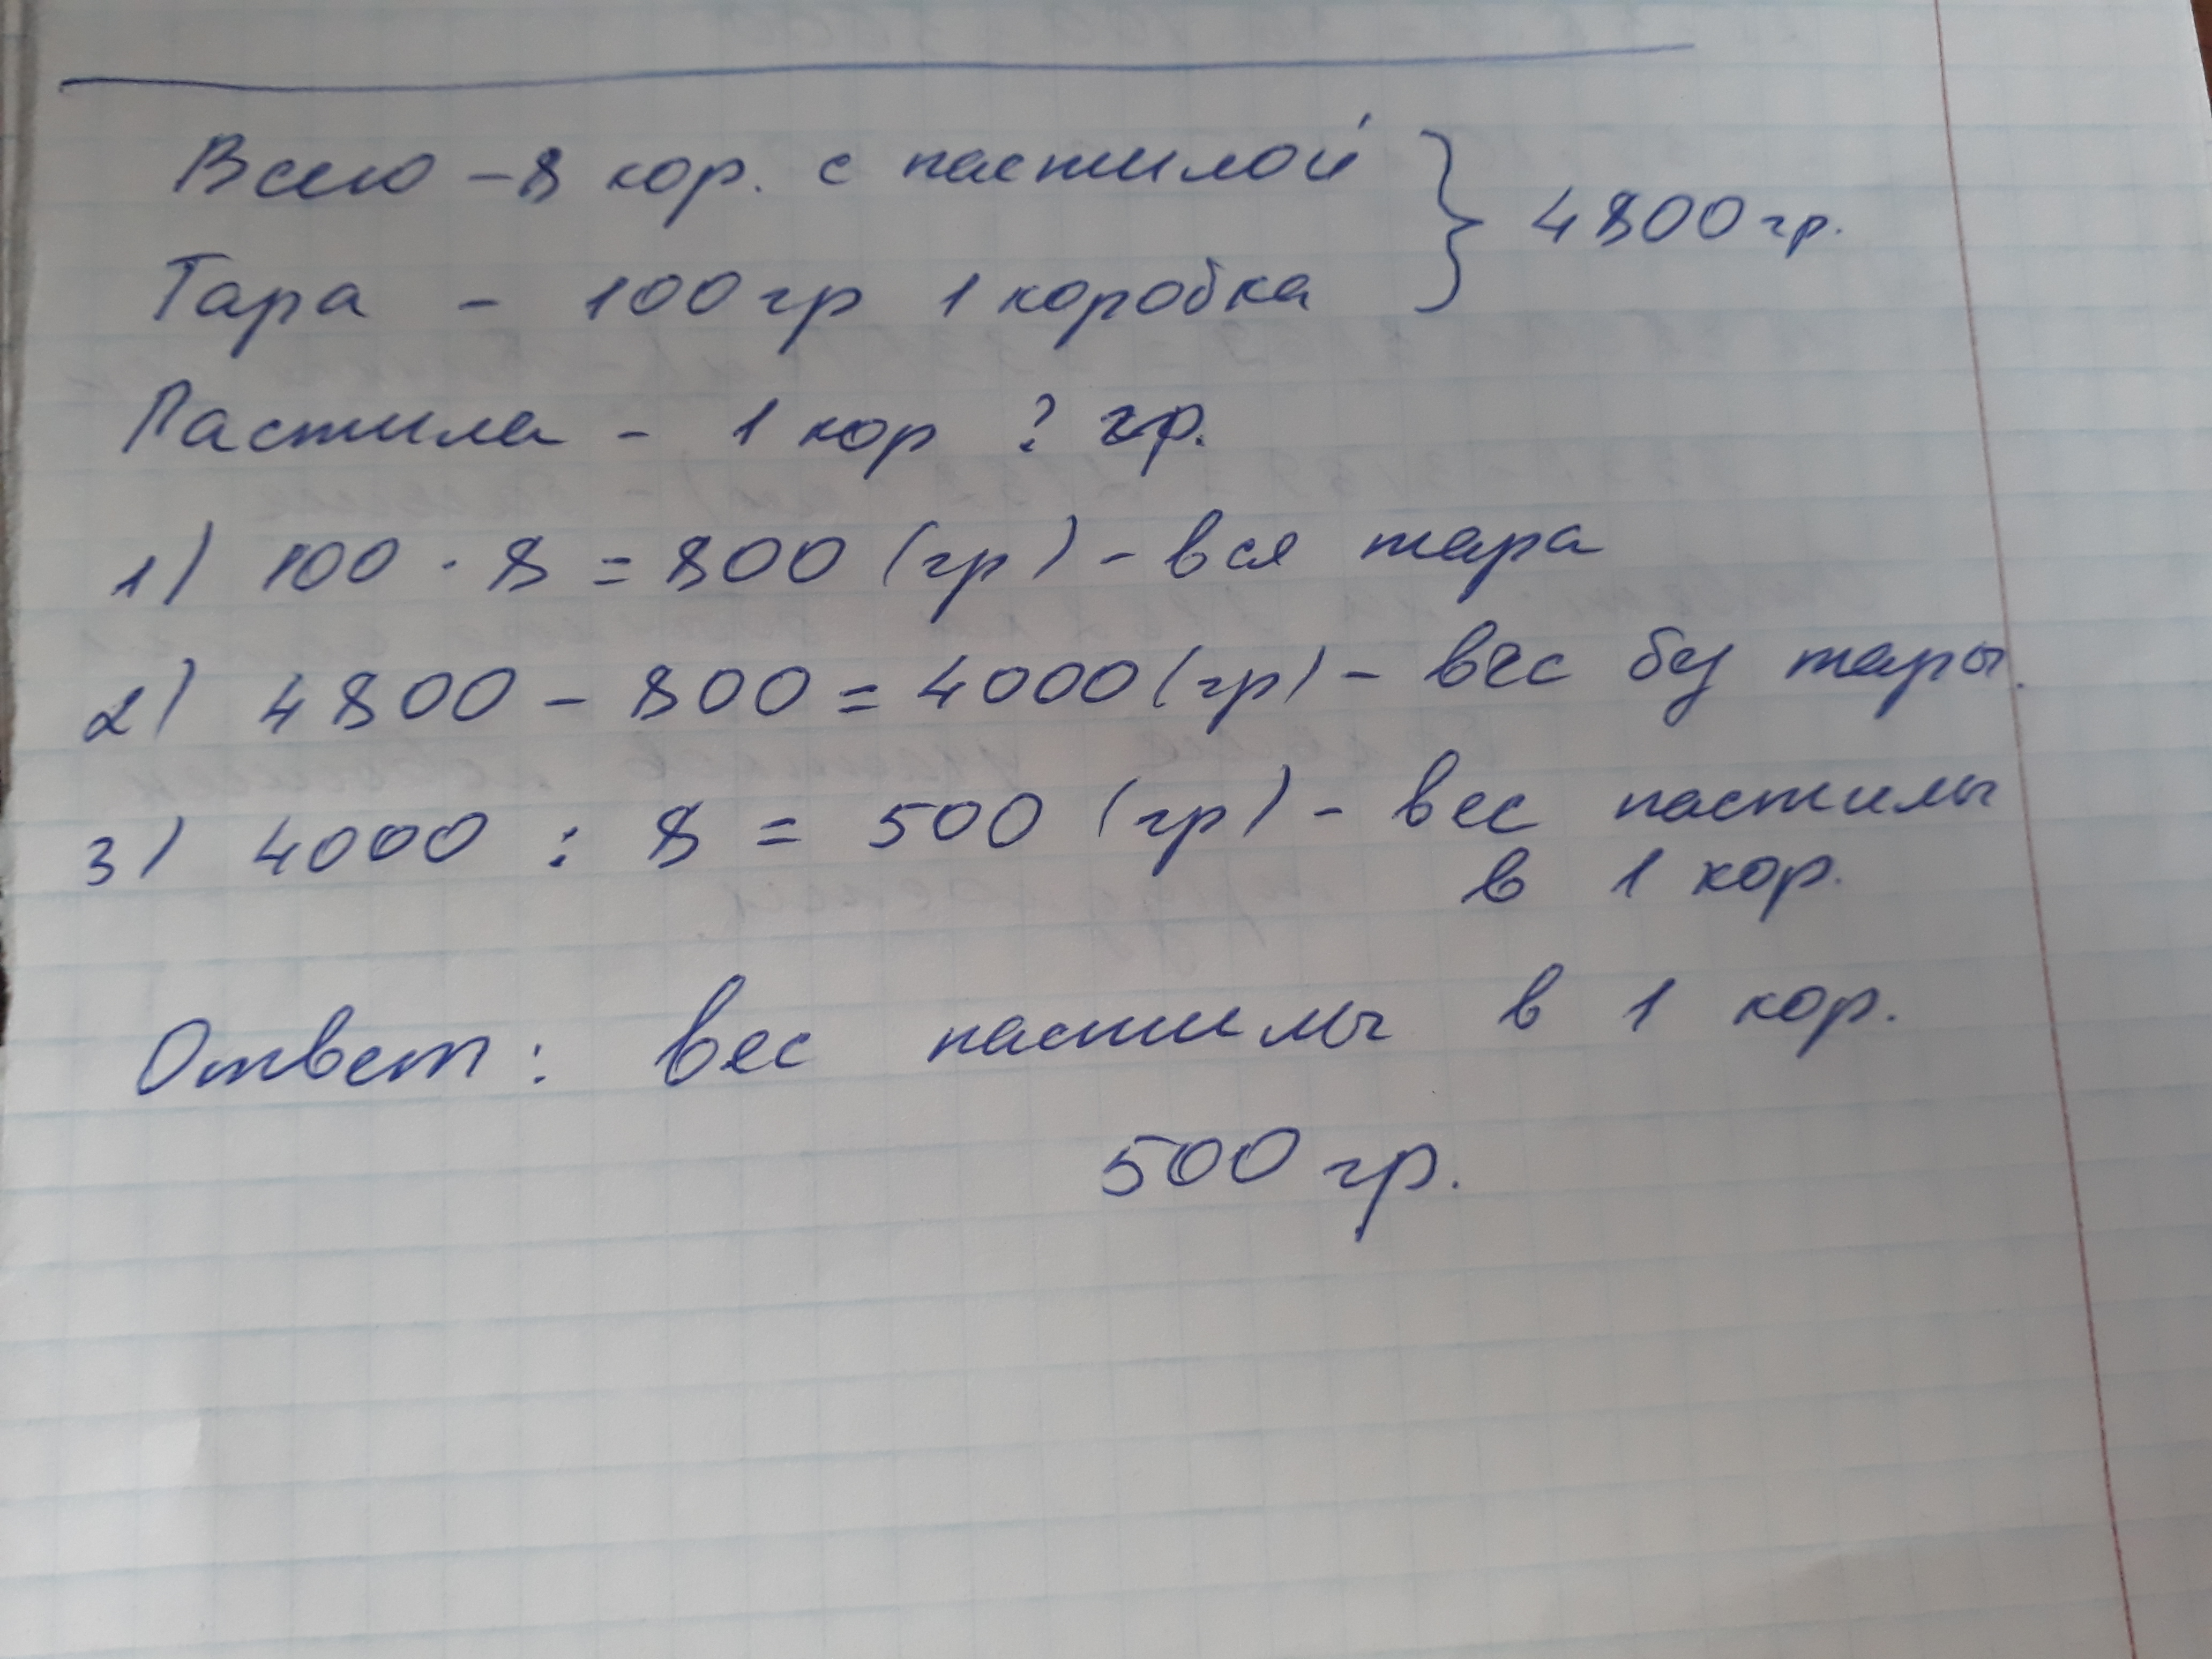 Всего - 8 кор. с пастилой } 4800 гр.
Тара - 100 гр 1 коробка
Пастила - 1 кор ? гр.
1) 100 · 8 = 800 (гр) - вся тара
2) 4800 - 800 = 4000 (гр) - вес без тары.
3) 4000 : 8 = 500 (гр) - вес пастилы
в 1 кор.
Ответ: вес пастилы в 1 кор.
500 гр.